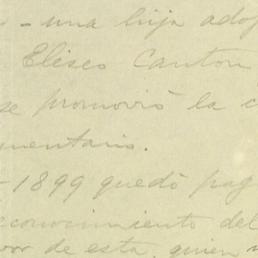 - una hija adop
Eliseo Canton
se promovió la c
mentario.
-1899 quedó pag
econocimiento del
vor de esta, quien